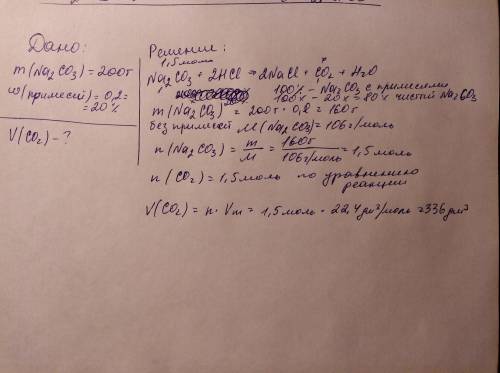 Дано:
m(Na2CO3)=200г
ω(примесей)=0,2=
=20%
V(CO2)-?
Решение:
1,5моль
Na2CO3 + 2HCl → 2NaCl + CO2 + H2O
100% - Na2CO3 с примесями
100% - 20% = 80% чистый Na2CO3
m(Na2CO3) = 200г · 0,8 = 160г
без примесей M(Na2CO3)=106г/моль
n(Na2CO3) = m/M = 160г/106г/моль = 1,5моль
n(CO2) = 1,5моль по уравнению
реакции
V(CO2) = n · Vm = 1,5моль · 22,4дм³/моль = 336дм³